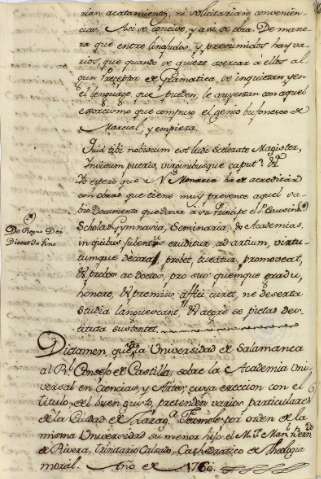 rian acatamiento, ni solicitarian convenien-
cias. Asi se concive, y asi se obra. De mane-
ra que entre linajudos, y presumidos hay va-
rios, que quando se quiere acercar a ellos al-
gun Preceptor de Gramatica, se inquietan, y en
el lenguage, que pueden, le ahuyentan con aquel
que compuso el genio bufonesco de
Marcial, y empieza
Quid tibi nobiscum est ludi scelerate Magister,
Invisum pueris, virginibusque caput?
que N. Monarca ha de acreditar
con obras que tiene muy presente aquel sa-
bio Documento que dava a su Principe el
Scholas, Gymnasia, Seminaria, & Academias,
in quibus juventus eruditur ad artium, virtu-
tumque decora, probet, tueatur, promoveat,
& probos ac doctos, pro suo quemque gradu,
honore, & premiis affici curet, ne deserta
studia languescant, & ac pietas des-
tituta sustentet.
Dictamen, que la Universidad de Salamanca
al Rl. Consejo de Castilla, sobre la Academia Uni-
versal de Ciencias, y Artes, cuya ereccion con el
titulo de el buen gusto, pretenden varios particulares
de la Ciudad de Zarag.a por orden de la
misma Universidad su menor hijo el M.
de Rivera, Trinitario Calzado, Cathedratico de Theologia
moral. Año de 1760.